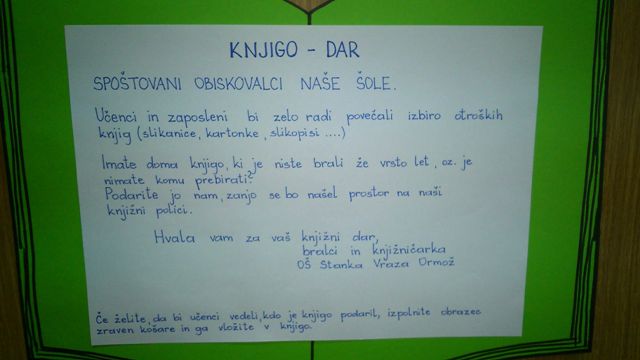 KNJIGO - DAR
SPOŠTOVANI OBISKOVALCI NAŠE ŠOLE.
Učenci in zaposleni bi zelo radi povečali izbiro otroških
knjig (slikanice, kartonke, slikopisi ....)
Imate doma knjigo, ki je niste brali že vrsto let, oz. je
nimate komu prebirati?
Podarite jo nam, zanjo se bo našel prostor na naši
knjižni polici.
Hvala vam za vaš knjižni dar,
bralci in knjižničarka
OŠ Stanka Vraza Ormož
Če želite, da bi učenci vedeli, kdo je knjigo podaril, izpolnite obrazec
zraven košare in ga vložite v knjigo.